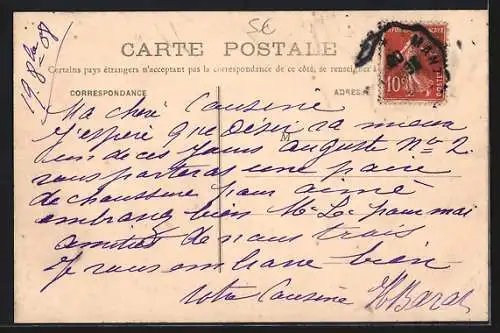 5€
19. 8bre 08
CARTE POSTALE
Certains pays étrangers n'acceptant pas la correspondance de ce côté, se renseigner à
CORRESPONDANCE
ADRES
10c
POSTES
MAN
M
Ma chère Cousine
J'espère que Désiré sa mieux
un de ces Jours auguste No 2.
vous portera une paire
de chaussure pour aimé
embrance bien Me Le pour moi
amitié de nous trois
Je vous embrasse bien
votre Cousine HBarat